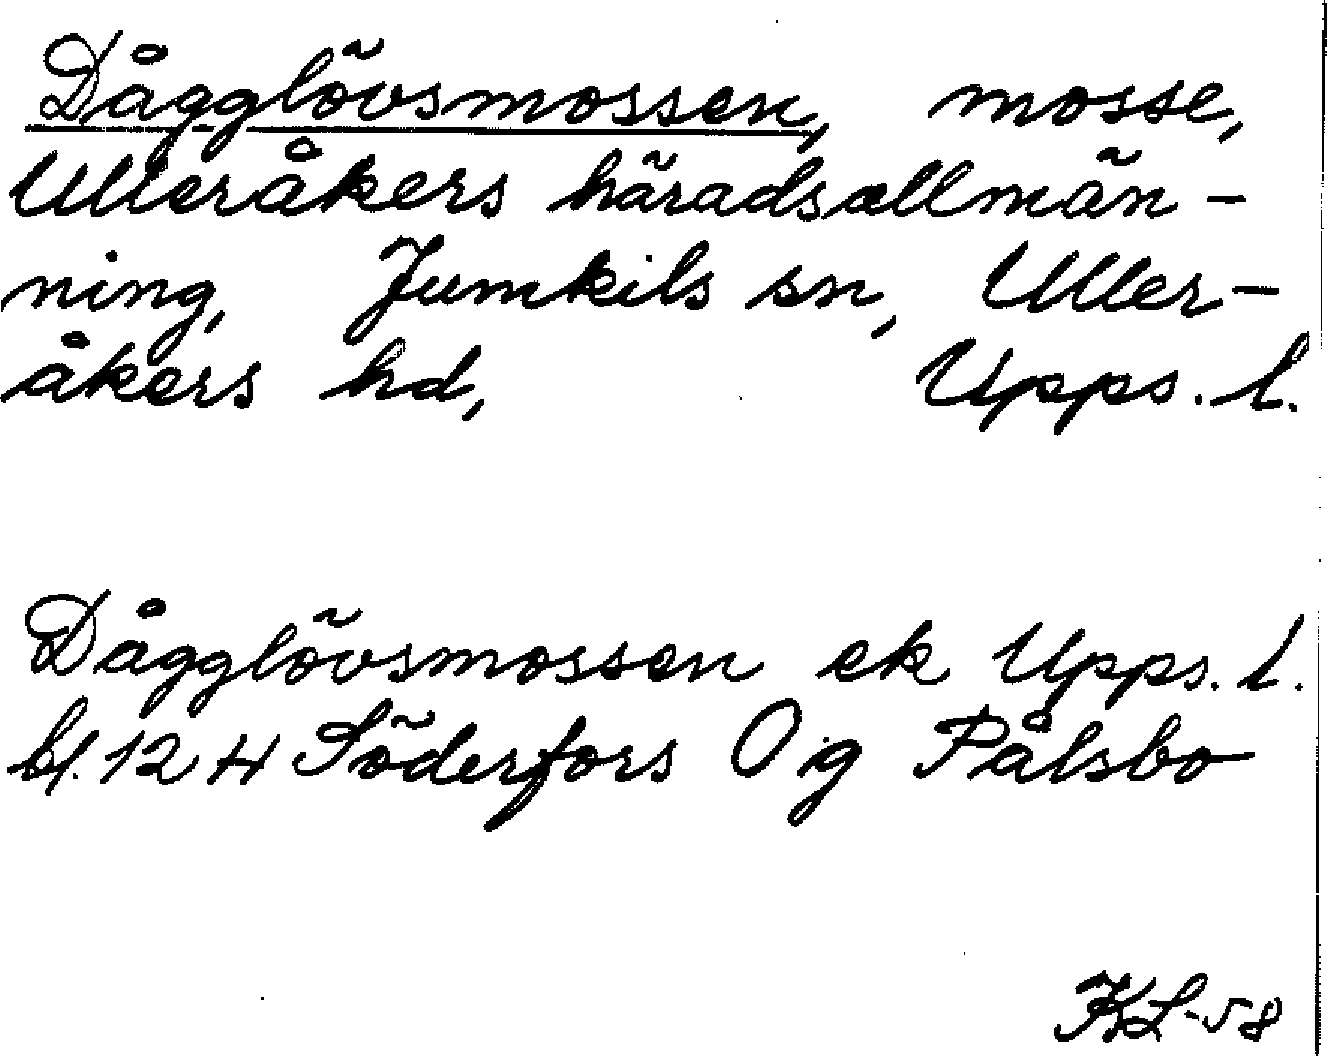 Dågglövsmossen, mosse,
Ulleråkers häradsallmän-
ning, Jumkils sn, Uller-
åkers hd, Upps. l.
Dågglövsmossen ek Upps. l.
bl. 12 H Söderfors O ig Pålsbo
KL-58